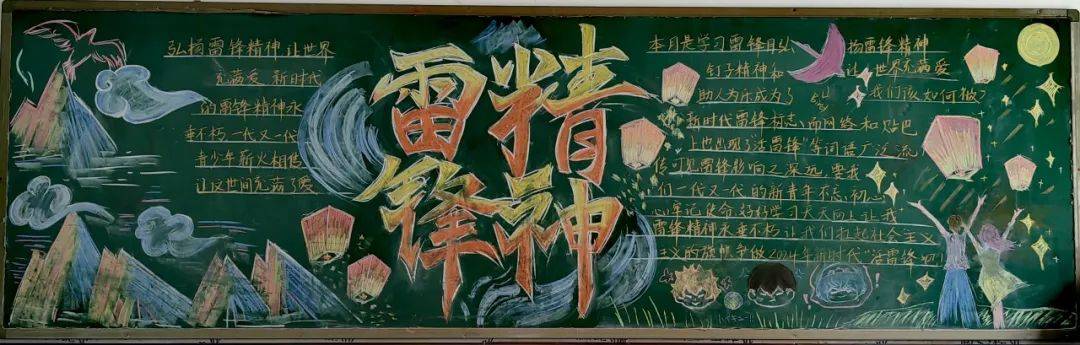 弘扬雷锋精神让世界
充满爱 新时代
的雷锋精神永
垂不朽一代又一代
青少年薪火相传
让这世间充满了爱
雷锋
精神
本月是学习雷锋月弘扬雷锋精神
钉子精神和 让世界充满爱
助人为乐成为了 我们该如何做?
新时代雷锋标志,而网络和贴吧
上也出现了活雷锋"等词语广泛流
传可见雷锋影响之深远,要我
们一代又一代的新青年不忘初心
牢记使命好好学习天天向上让我
雷锋精神永垂不朽让我们扛起社会主义
主义的旗帜争做2024年新时代"活雷锋吧!